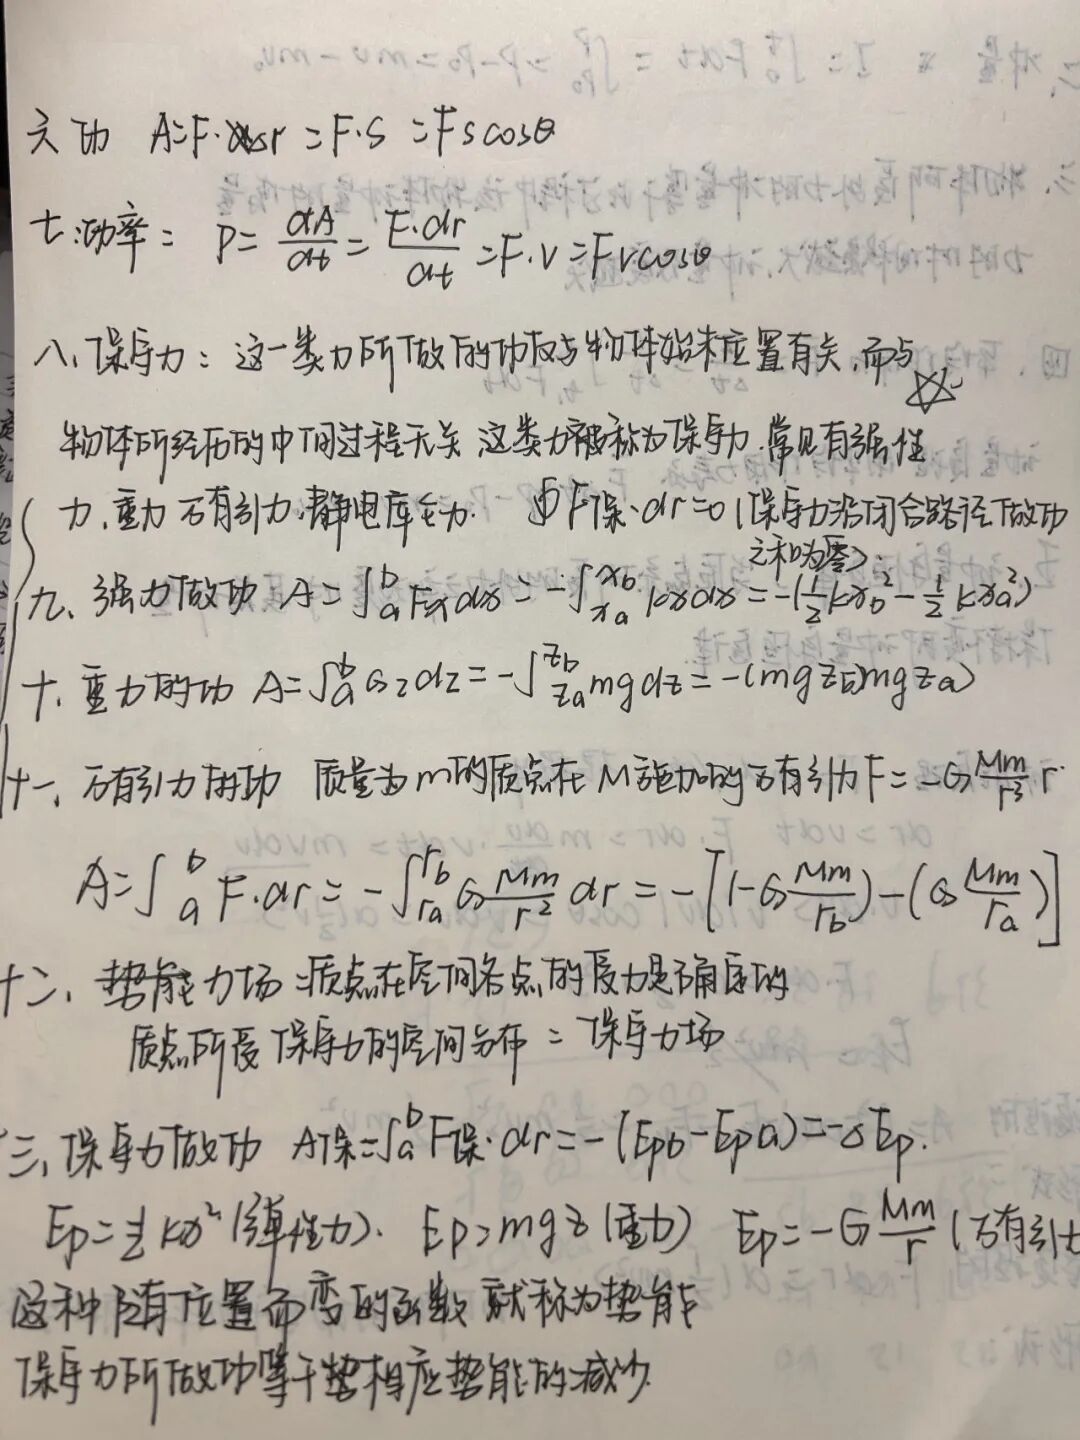 六 功 A=F·Δr=F·S=Fscosθ
七.功率: P=dA/dt=F·dr/dt=F·V=Fvcosθ
八、保守力:这一类力所做的功仅与物体始末位置有关,而与
物体所经历的中间过程无关 这类力被称为保守力.常见有强性
力、重力 万有引力、静电库仑力. ∮F保·dr=0(保守力沿闭合路径做功
之和为零)
九、强力做功 A=∫ₐᵇFxdx=-∫_{xa}^{xb}kxdx=-(½kx_b²-½kx_a²)
十、重力的功 A=∫ₐᵇG_zdz=-∫_{za}^{zb}mgdz=-(mgz_b-mgz_a)
十一、万有引力的功 质量为m的质点在M施加的万有引力F=-G Mm/r³ r
A=∫ₐᵇF·dr=-∫_{ra}^{rb}G Mm/r² dr=-[(-G Mm/r_b)-(G Mm/r_a)]
十二、势能力场:质点在空间各点的受力是确定的
质点所受保守力的空间分布=保守力场
三、保守力做功 A保=∫ₐᵇF保·dr=-(Epb-Epa)=-ΔEp.
Ep=½kx²(弹性力). Ep=mgz(重力) Ep=-G Mm/r(万有引力
这种随位置而变的函数就称为势能
保守力所做功等于势相应势能的减少.